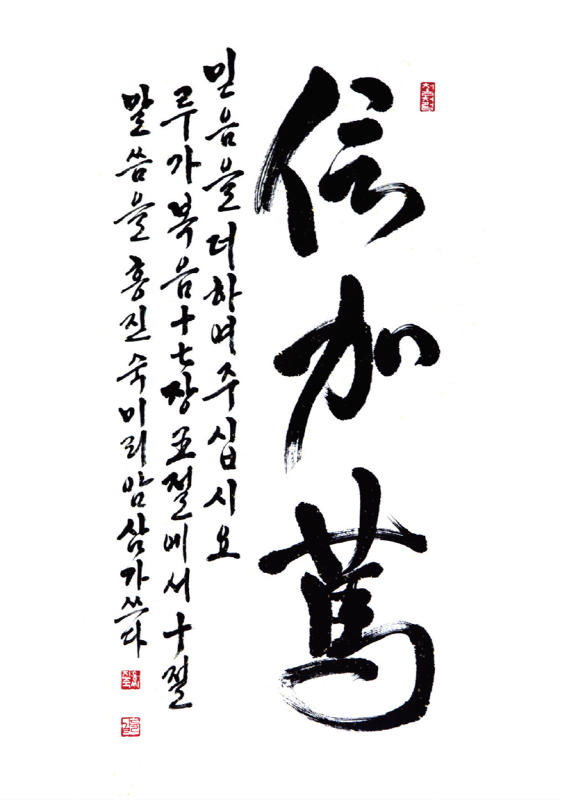 信加篤
믿음을 더하여 주십시요
루가복음 十七장 五절에서 十절
말씀을 홍진숙 미리암 삼가 쓰다